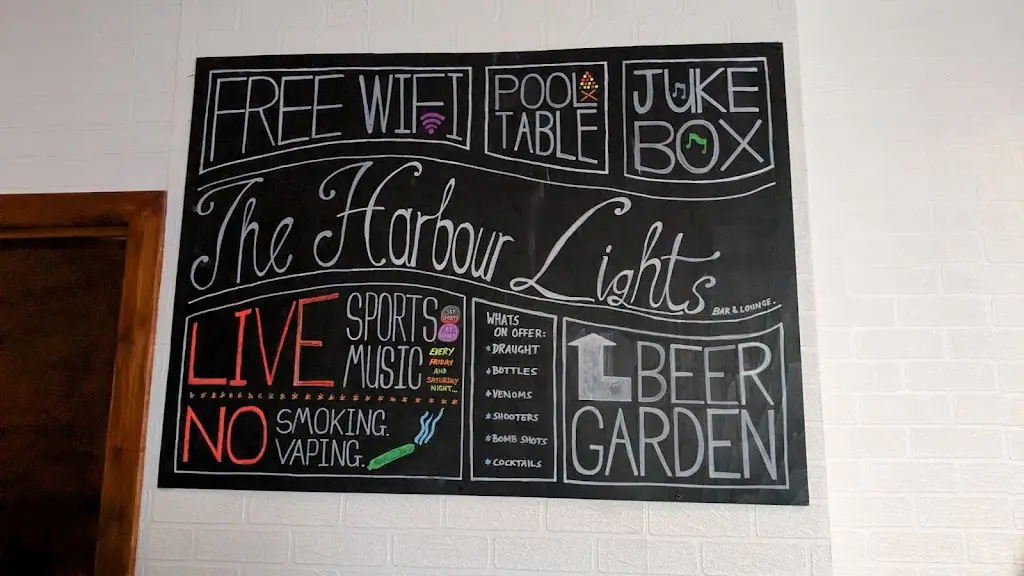 FREE WIFI
POOL
TABLE
JUKE
BOX
The Harbour Lights
BAR & LOUNGE.
LIVE
SPORTS
SKY
SPORTS
BT
SPORT
MUSIC
EVERY
FRIDAY
AND
SATURDAY
NIGHT...
NO
SMOKING.
VAPING.
WHATS
ON OFFER:
*DRAUGHT
*BOTTLES
*VENOMS
*SHOOTERS
*BOMB SHOTS
*COCKTAILS
BEER
GARDEN